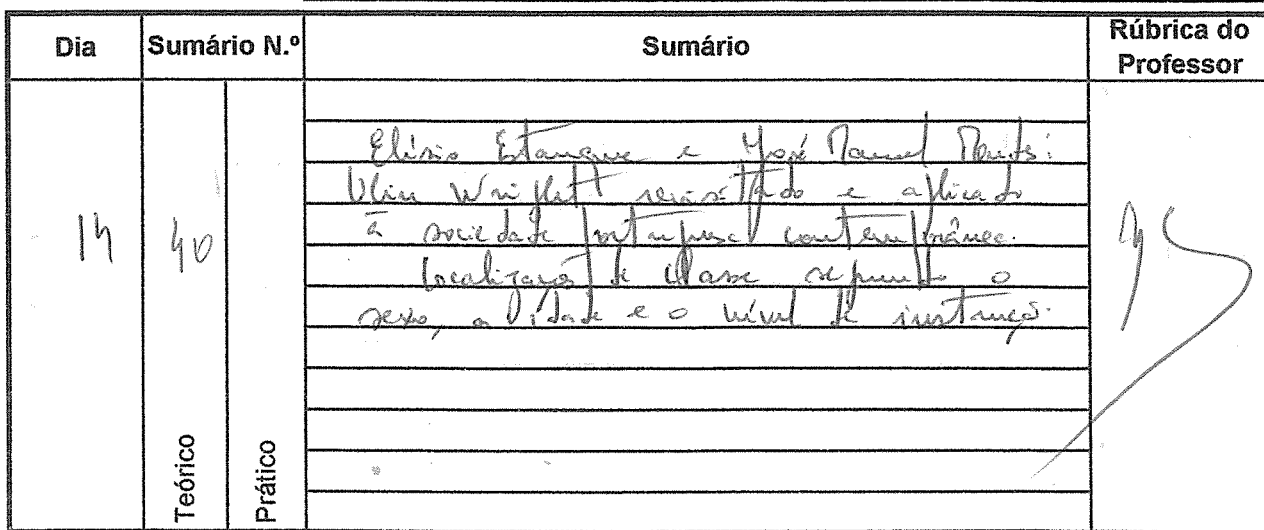 Dia
Sumário N.º
Sumário
Rúbrica do
Professor
14
40
Elísio Estanque e José Manuel Mendes:
Olin Wright revisitado e aplicado
à sociedade portuguesa contemporânea.
Localização de classe segundo o
sexo, a idade e o nível de instrução.
Teórico
Prático